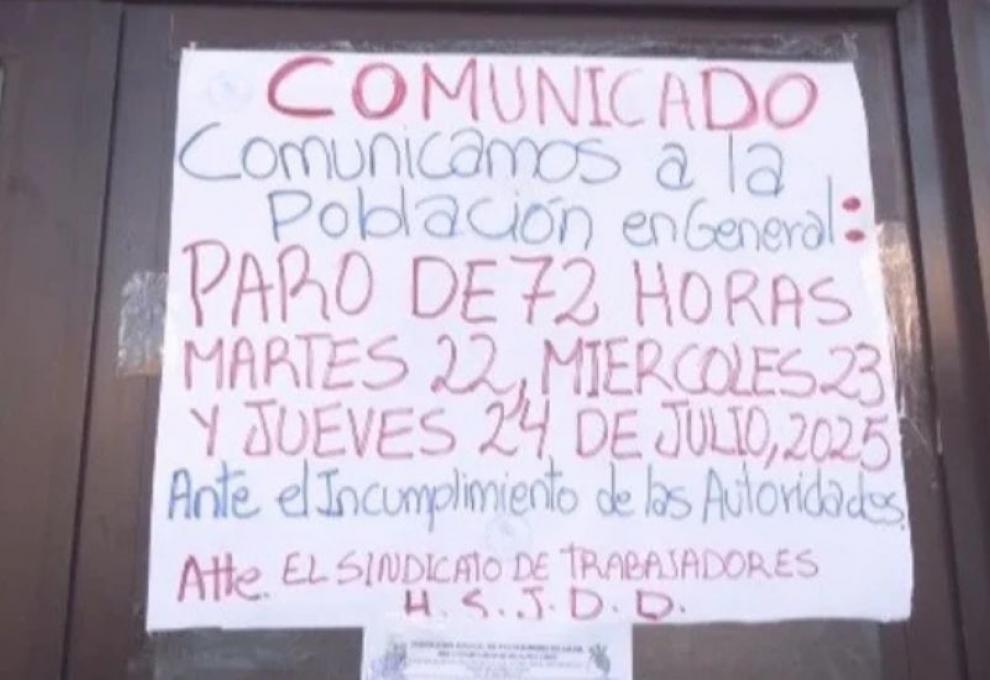 COMUNICADO
Comunicamos a la
Población en General:
PARO DE 72 HORAS
MARTES 22, MIERCOLES 23
Y JUEVES 24 DE JULIO, 2025
Ante el Incumplimiento de las Autoridades.
Atte. EL SINDICATO DE TRABAJADORES
H. S. J. D. D.